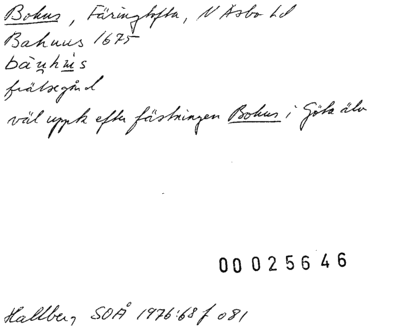 Bohus, Färingtofta, N Åsbo hd
Bahuus 1675
bau̯hús
frälsegård
väl uppk efter fästningen Bohus i Göta älv
00025646
Hallberg SOÅ 1976:68 f 081